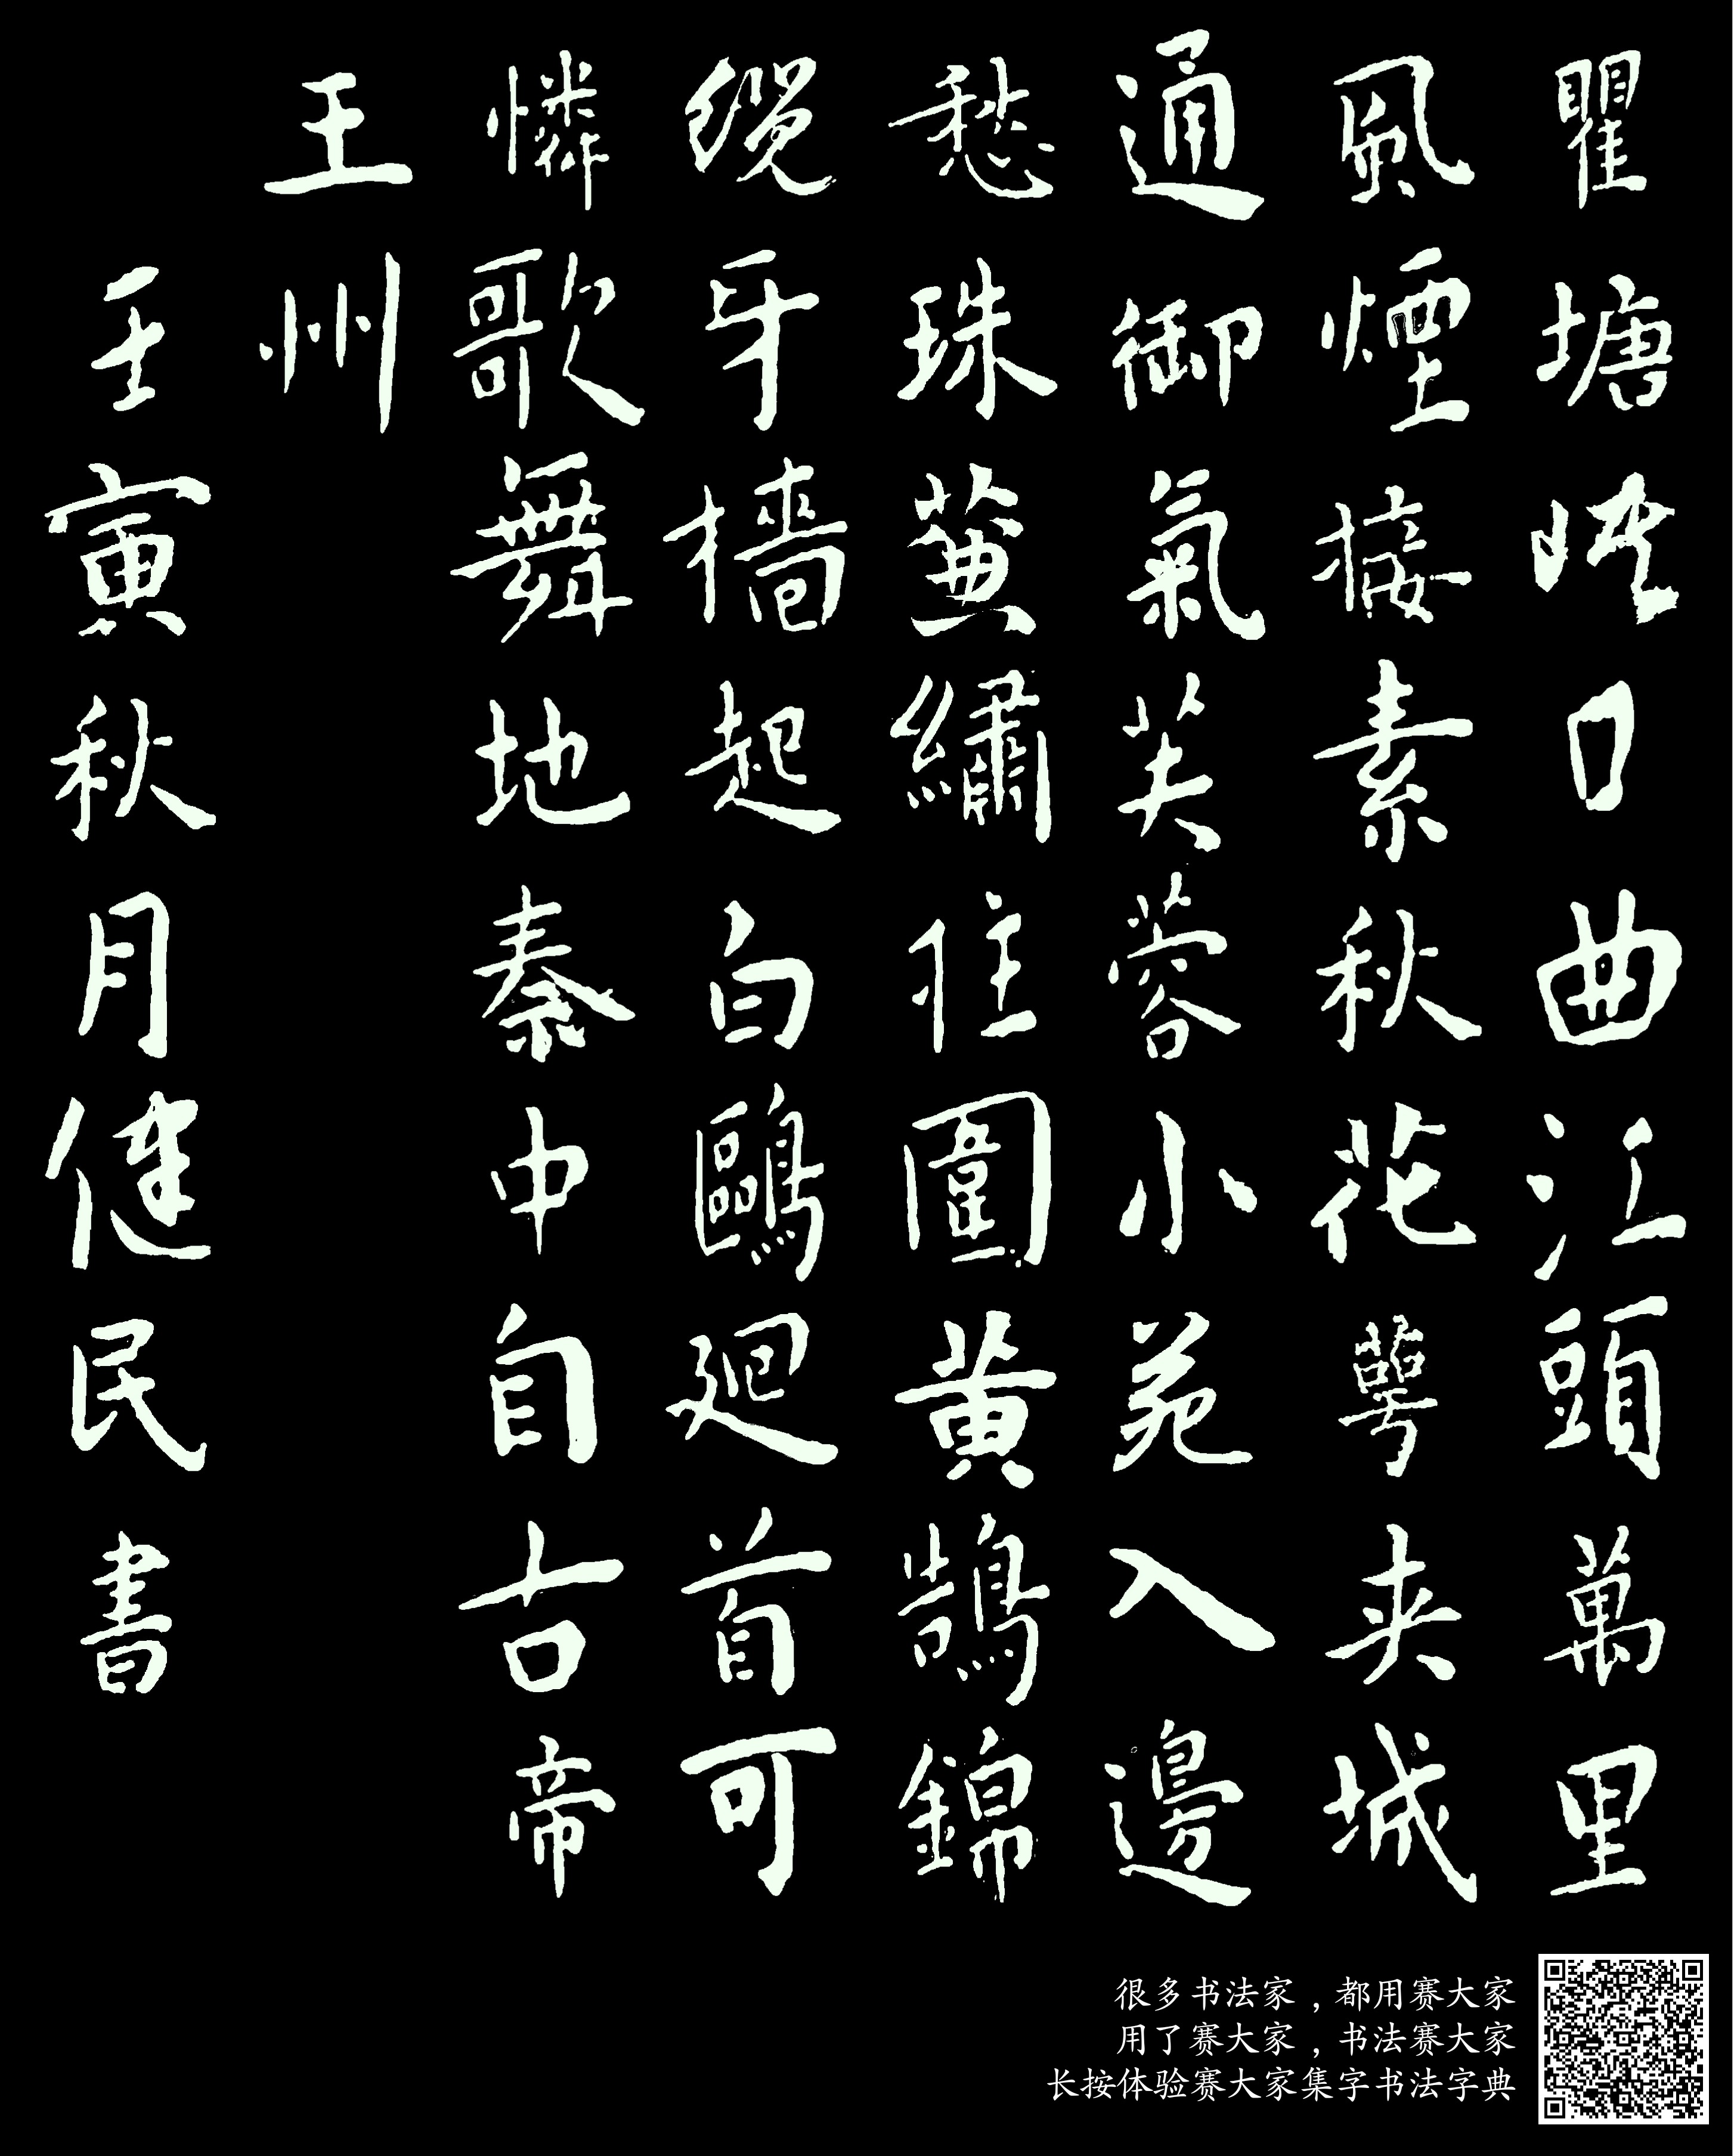 瞿塘峽口曲江頭萬里
風煙接素秋花萼夾城
通御氣芙蓉小苑入邊
愁珠簾繡柱圍黃鵠錦
纜牙檣起白鷗廻首可
憐歌舞地秦中自古帝
王州
壬寅秋月健民書
很多书法家，都用赛大家
用了赛大家，书法赛大家
长按体验赛大家集字书法字典